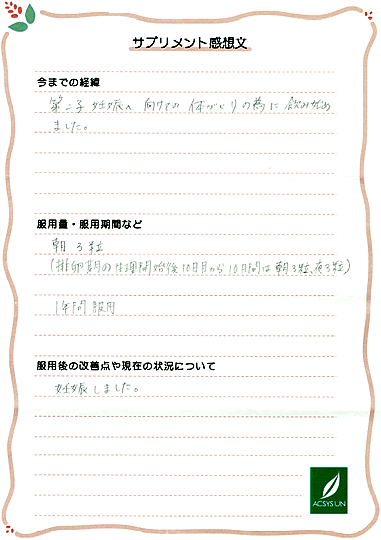 サプリメント感想文
今までの経緯
第二子妊娠へ向けての体づくりの為に飲み始め
ました。
服用量・服用期間など
朝 3粒
(排卵期の生理開始後10日目から10日間は朝3粒、夜3粒)
1年間服用
服用後の改善点や現在の状況について
妊娠しました。
ACSYS UN